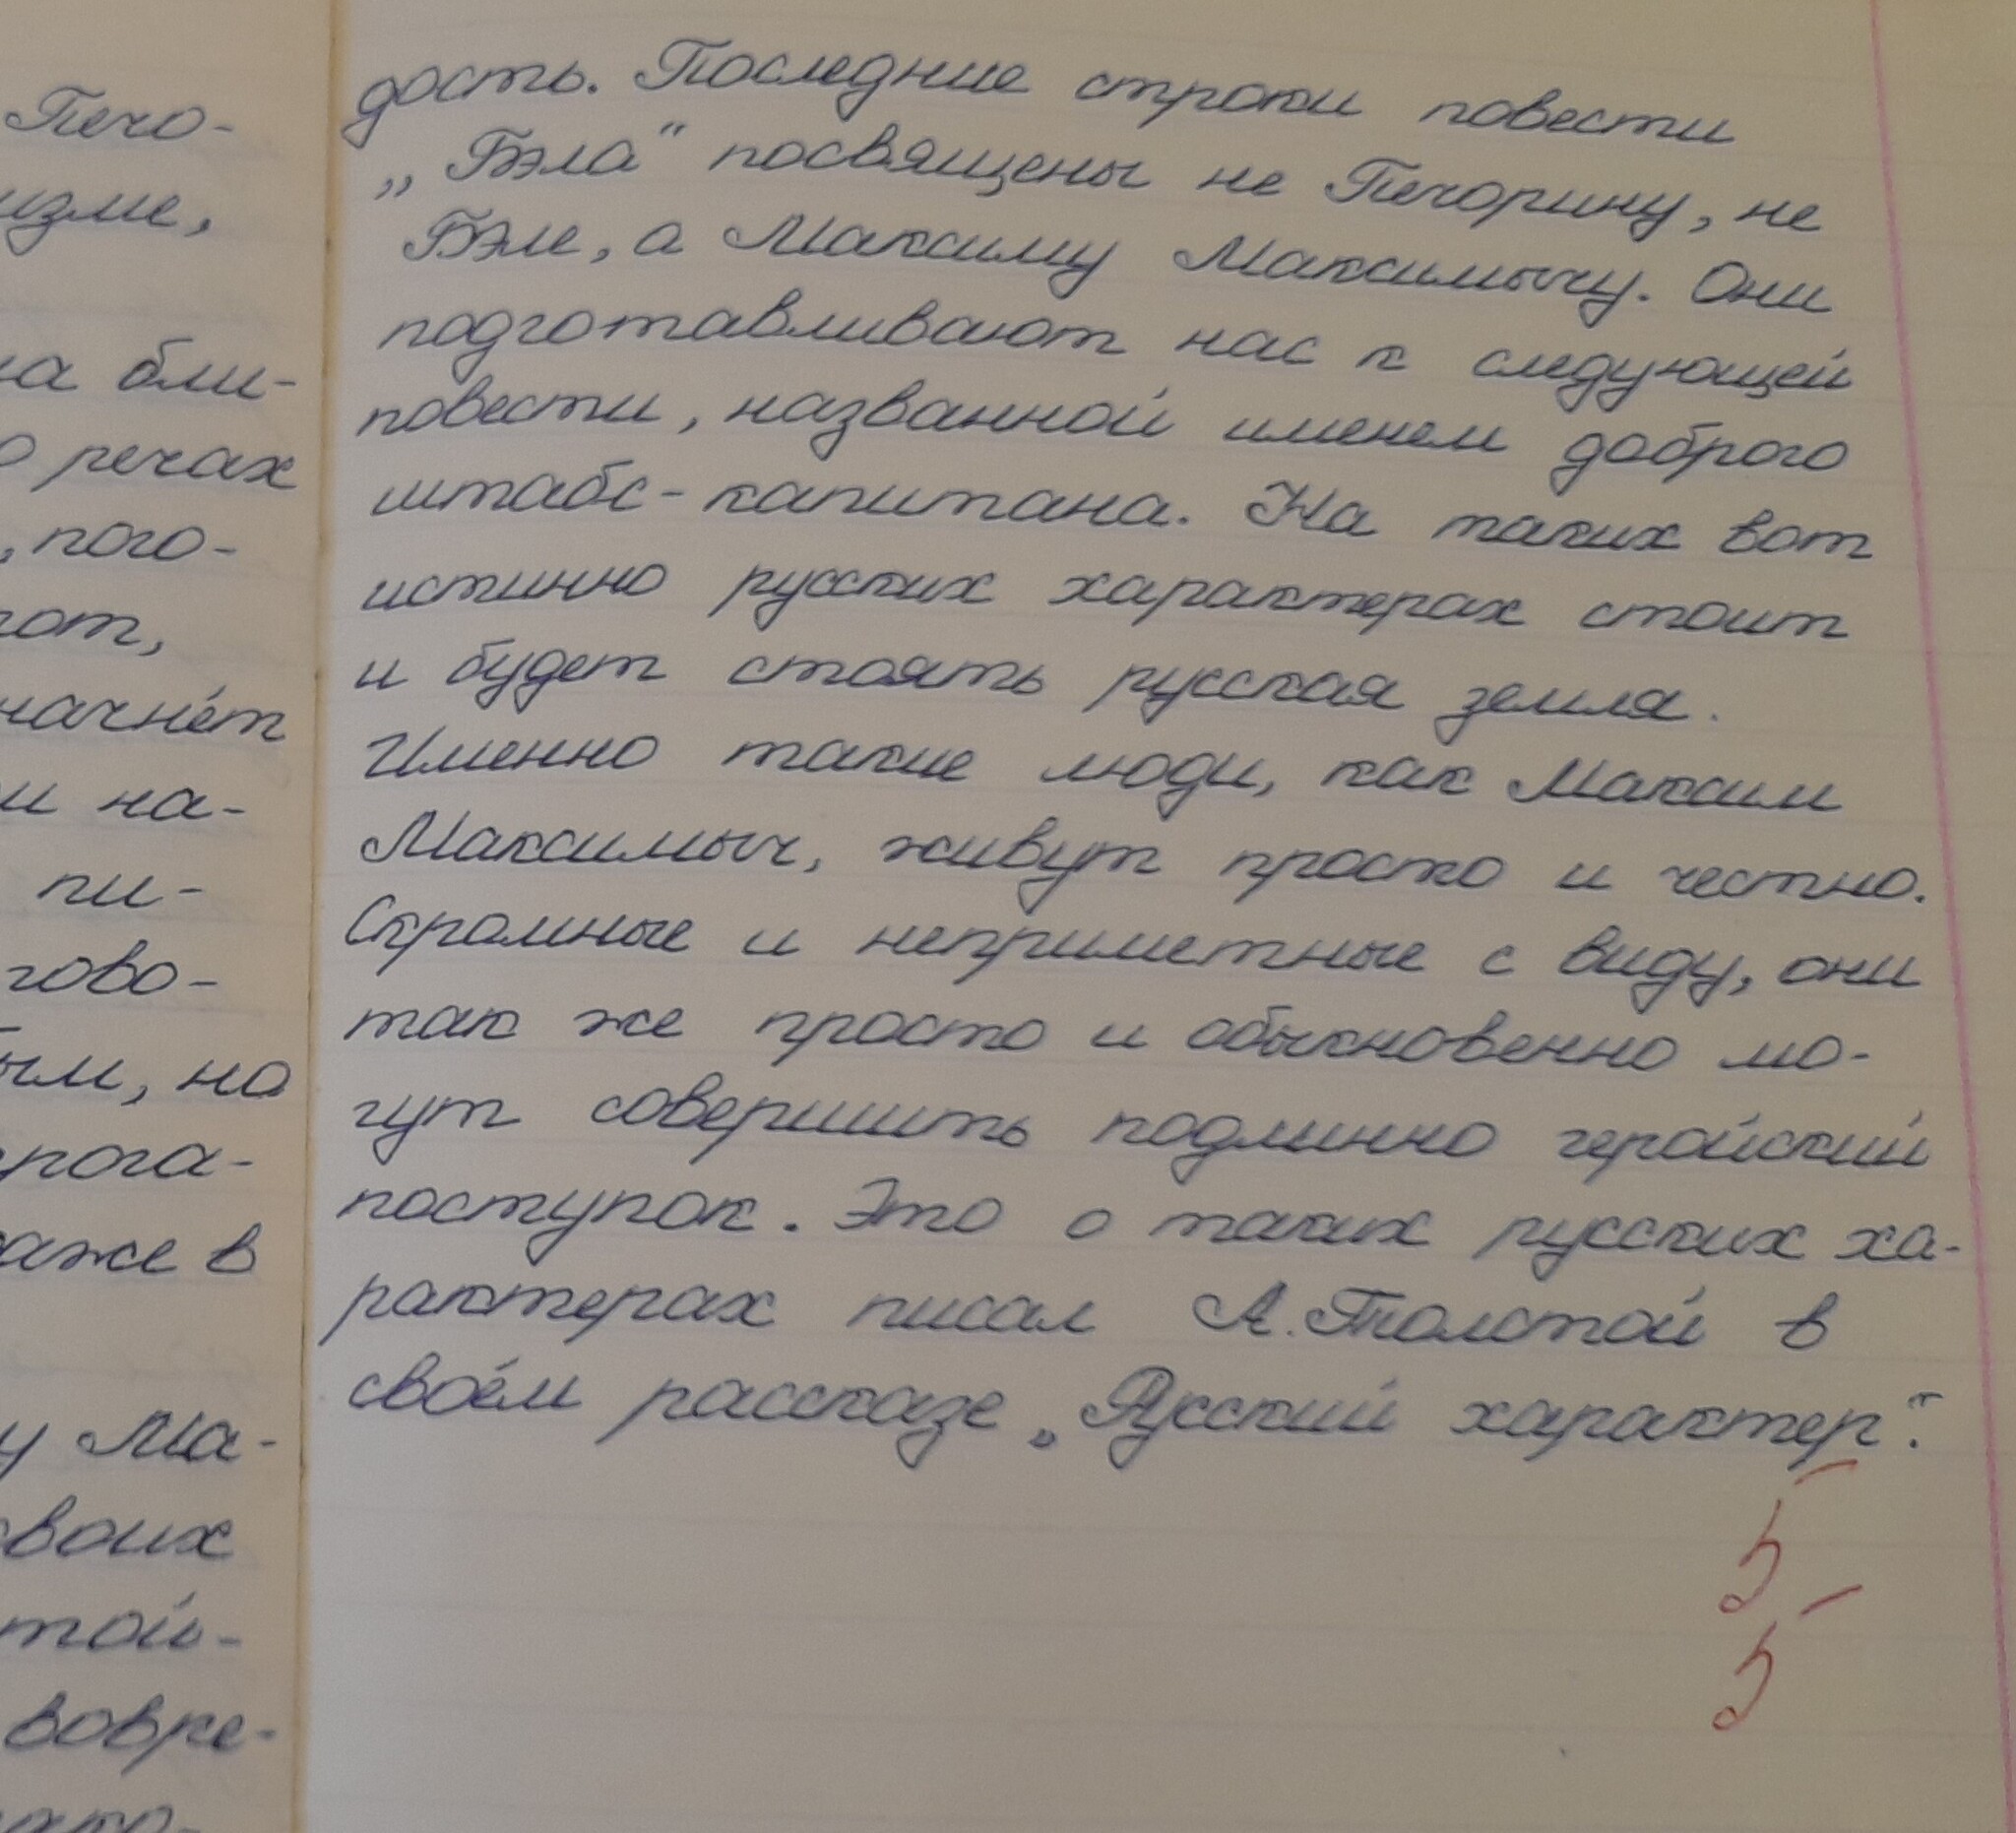 Печо-
изме,
на бли-
о речах
, пого-
начнёт
и на-
пи-
гово-
ым, но
рога-
даже в
у Ма-
своих
той-
вовре-
дость. Последние строки повести
„Бэла" посвящены не Печорину, не
Бэле, а Максиму Максимычу. Они
подготавливают нас к следующей
повести, названной именем доброго
штабс-капитана. На таких вот
истинно русских характерах стоит
и будет стоять русская земля.
Именно такие люди, как Максим
Максимыч, живут просто и честно.
Скромные и неприметные с виду, они
так же просто и обыкновенно мо-
гут совершить подлинно геройский
поступок. Это о таких русских ха-
рактерах писал А.Толстой в
своём рассказе „Русский характер".
5
5